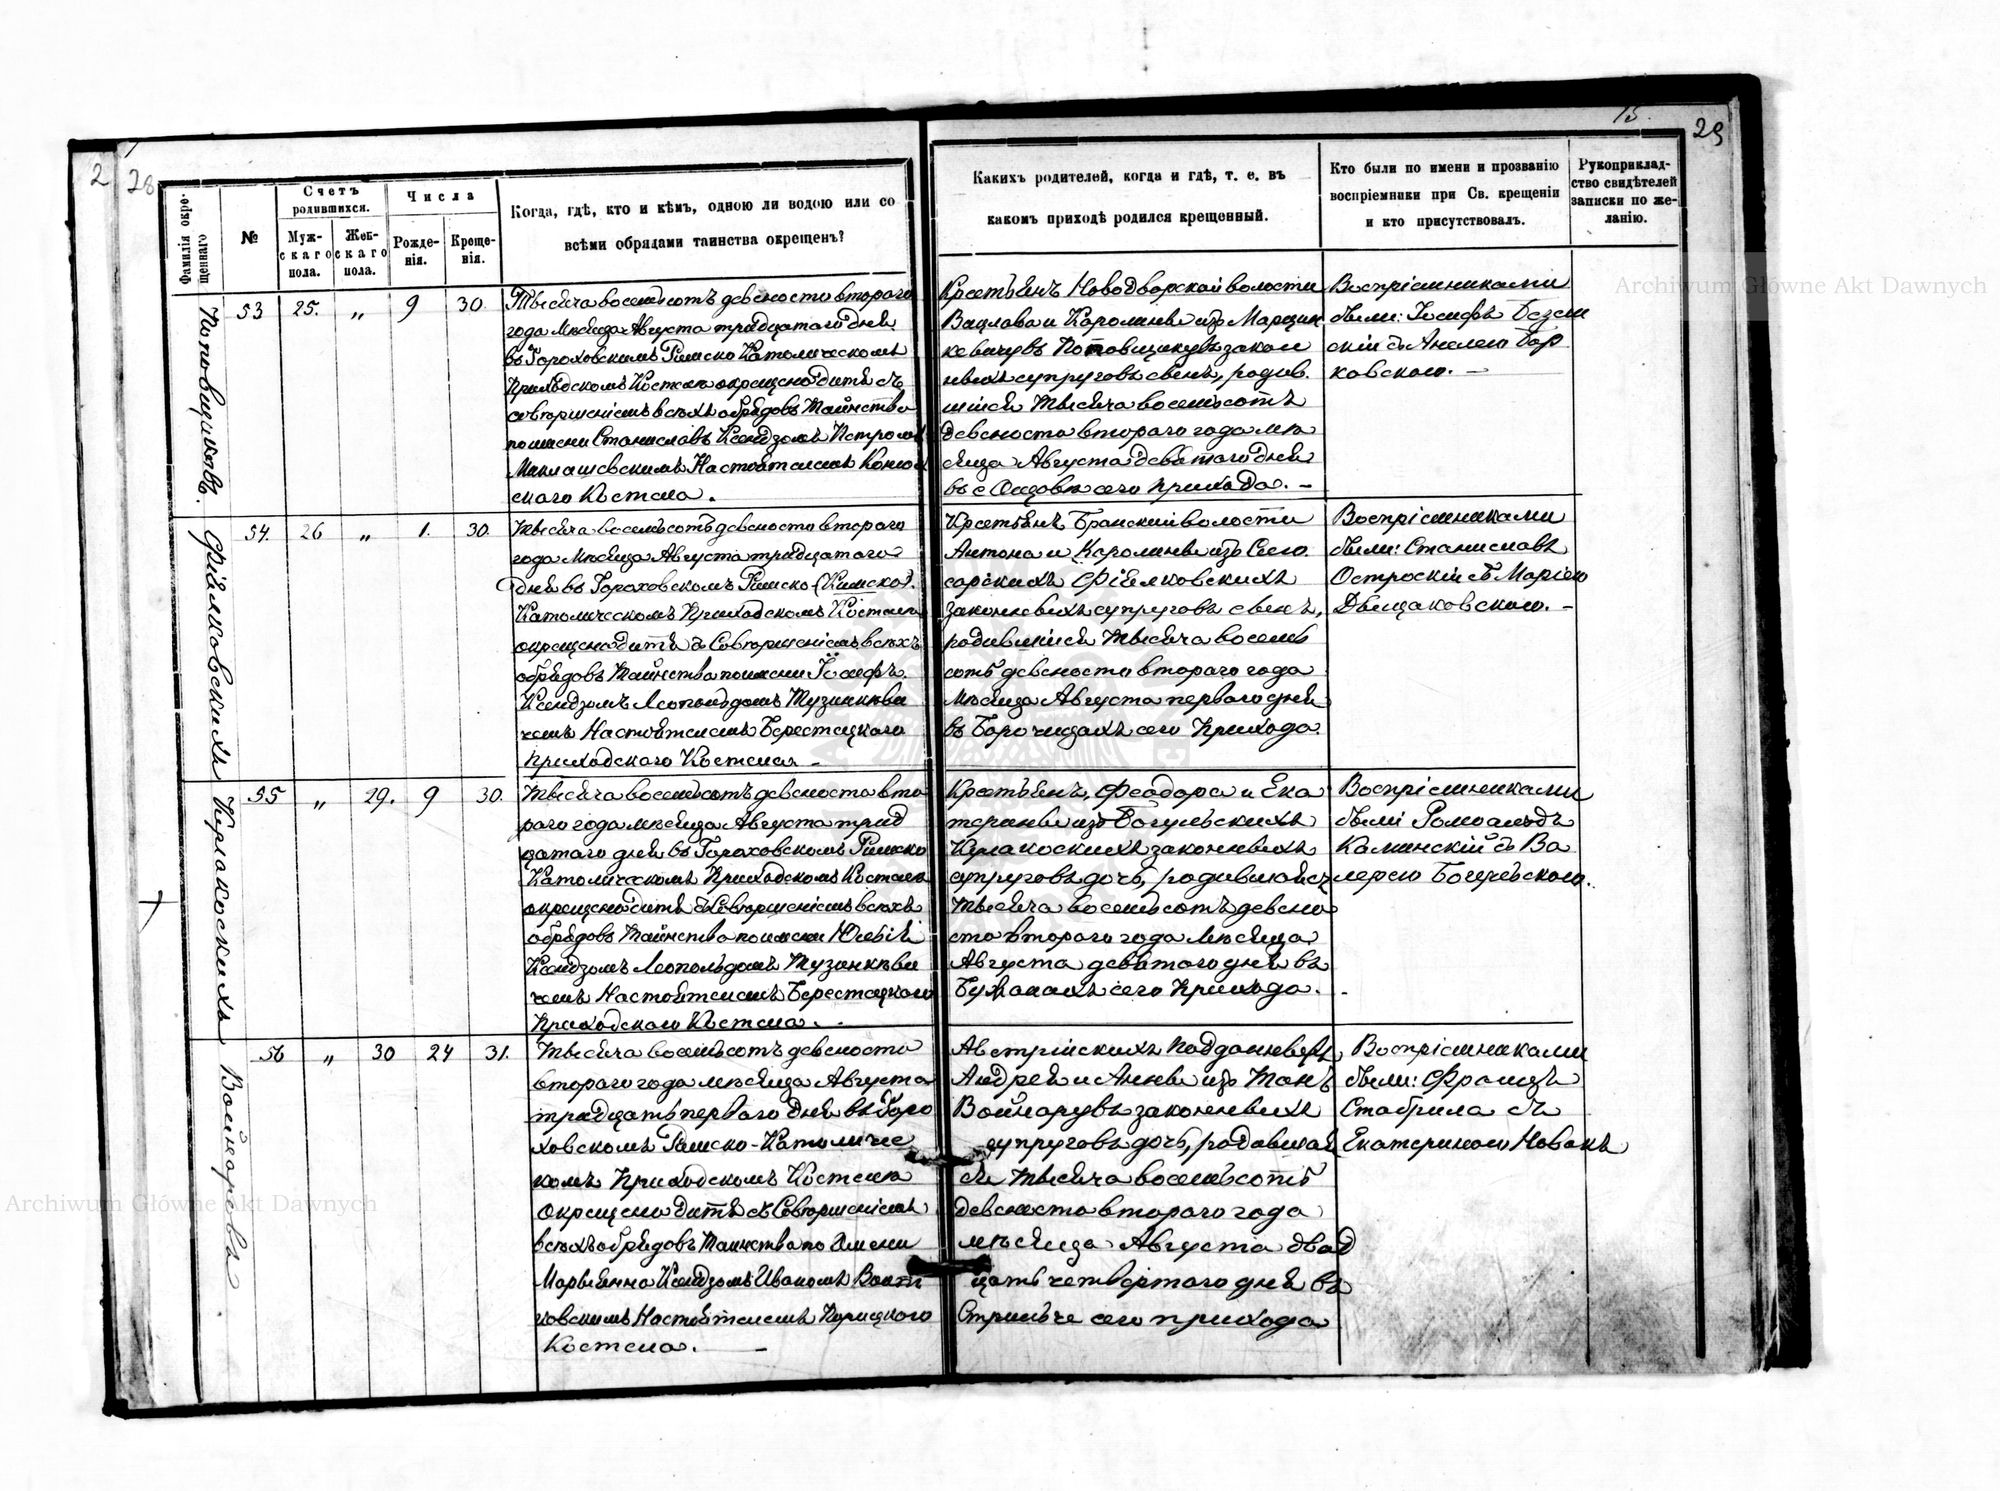 2
28
15.
29
Фамилія окре-
щеннаго
№
Счетъ
родившихся.
Муж-
скаго
пола.
Жен-
скаго
пола.
Числа
Рожде-
нія.
Креще-
нія.
Когда, гдѣ, кто и кѣмъ, одною ли водою или со
всѣми обрядами таинства окрещенъ?
Какихъ родителей, когда и гдѣ, т. е. въ
какомъ приходѣ родился крещенный.
Кто были по имени и прозванію
воспріемники при Св. крещеніи
и кто присутствовалъ.
Рукоприклад-
ство свидѣтелей
записки по же-
ланію.
53 25. „ 9 30.
Тысяча восемьсотъ девяносто второго
года Мѣсяца Августа тридцатого дня
въ Гороховскимъ Римско Католическомъ
Приходскомъ Костелѣ окрещено дитя съ
совершеніемъ всѣхъ обрядовъ Таинства
по имени Станиславъ Ксендзомъ Петромъ
Настоятелемъ
ского Костела.
Крестьянъ Новодворской волости
Вацлава и Каролины изъ Марцин
кевичувъ закон
ныхъ супруговъ сынъ, родив.
шійся Тысяча восемьсотъ
девяносто второго года мѣ
сяца Августа девятого дня
въ с сего прихода. –
Воспріемниками
были: Іосифъ
скій съ Анелею Бор
ковскою. –
Фіялковскихъ
54. 26 „ 1. 30.
Тысяча восемьсотъ девяносто второго
года Мѣсяца Августа тридцатого
дня въ Гороховскомъ Римско (Римско).
Католическомъ Приходскомъ Костелѣ
окрещено дитя съ Совершеніемъ всѣхъ
обрядовъ Таинства по имени Іосифъ
Ксендзомъ Леопольдомъ Тузинкеви
чемъ Настоятелемъ Берестецкого
Приходского Костела –
Крестьянъ Бранскій волости
Антона и Каролины изъ
Фіялковскихъ
законныхъ супруговъ сынъ,
родившійся Тысяча восемь
сотъ девяносто второго года
Мѣсяца Августа первого дня
въ Борочицахъ сего Прихода.
Воспріемниками
были: Станиславъ
Остроскій съ Маріею
Дыщаковскою. –
55 „ 29. 9 30.
Тысяча восемьсотъ девяноста вто
рого года мѣсяца Августа трид
цатого дня въ Гороховскомъ Римско
Католическомъ Приходскомъ Костелѣ
окрещено дитя съ Совершеніемъ всѣхъ
обрядовъ Таинства по имени Юлія
Ксендзомъ Леопольдомъ Тузинкеви
чемъ Настоятелемъ Берестецкого
Приходского Костела.
Крестьянъ, Феодора и Ека
терины изъ Богульскихъ
законныхъ
супруговъ дочь, родившаяся
Тысяча восемьсотъ девяно
сто второго года Мѣсяца
Августа девятого дня въ
сего Прихода.
Воспріемниками
были Ромоальдъ
Каминскій съ Ва
лерею
Войнаровъ
56 „ 30 24 31.
Тысяча восемьсотъ девяносто
второго года мѣсяца Августа
тридцать первого дня въ Горо
ховскомъ Римско-Католиче
комъ Приходскомъ Костелѣ
окрещено дитя съ Совершеніемъ
всѣхъ обрядовъ Таинства по Имени
Марьянна Ксендзомъ Иваномъ Войт
ковскимъ Настоятелемъ Порицкого
Костела. –
Австрійскихъ Подданныхъ,
Андрея и Анны изъ
Войнарувъ законныхъ
супруговъ дочь, родавшая
ся Тысяча восемьсотъ
девяносто второго года
мѣсяца Августа двад
цать четвертого дня въ
Стрильче сего прихода
Воспріемниками
были: Францъ
Стабрила съ
Екатериною Новакъ
Archiwum Główne Akt Dawnych
Archiwum Główne Akt Dawnych